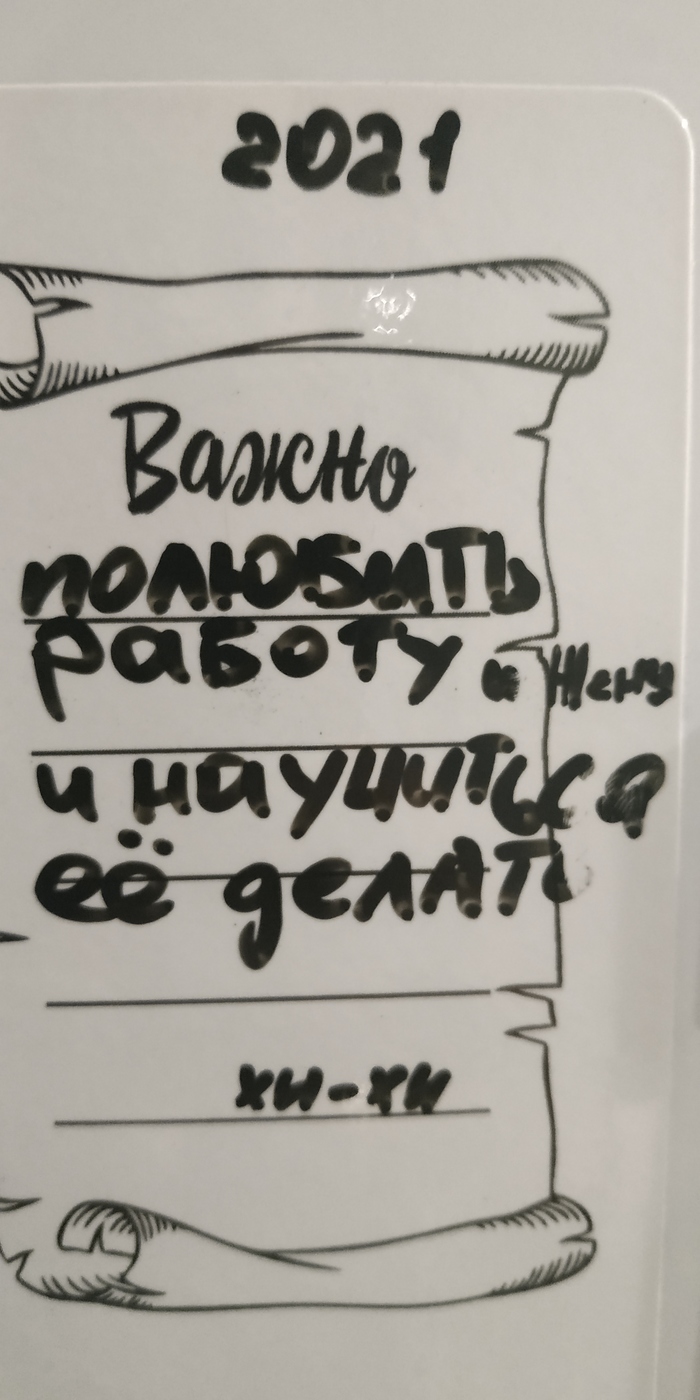 2021
Важно
полюбить
работу и Жену
и научиться
её делАТЬ
хи-хи